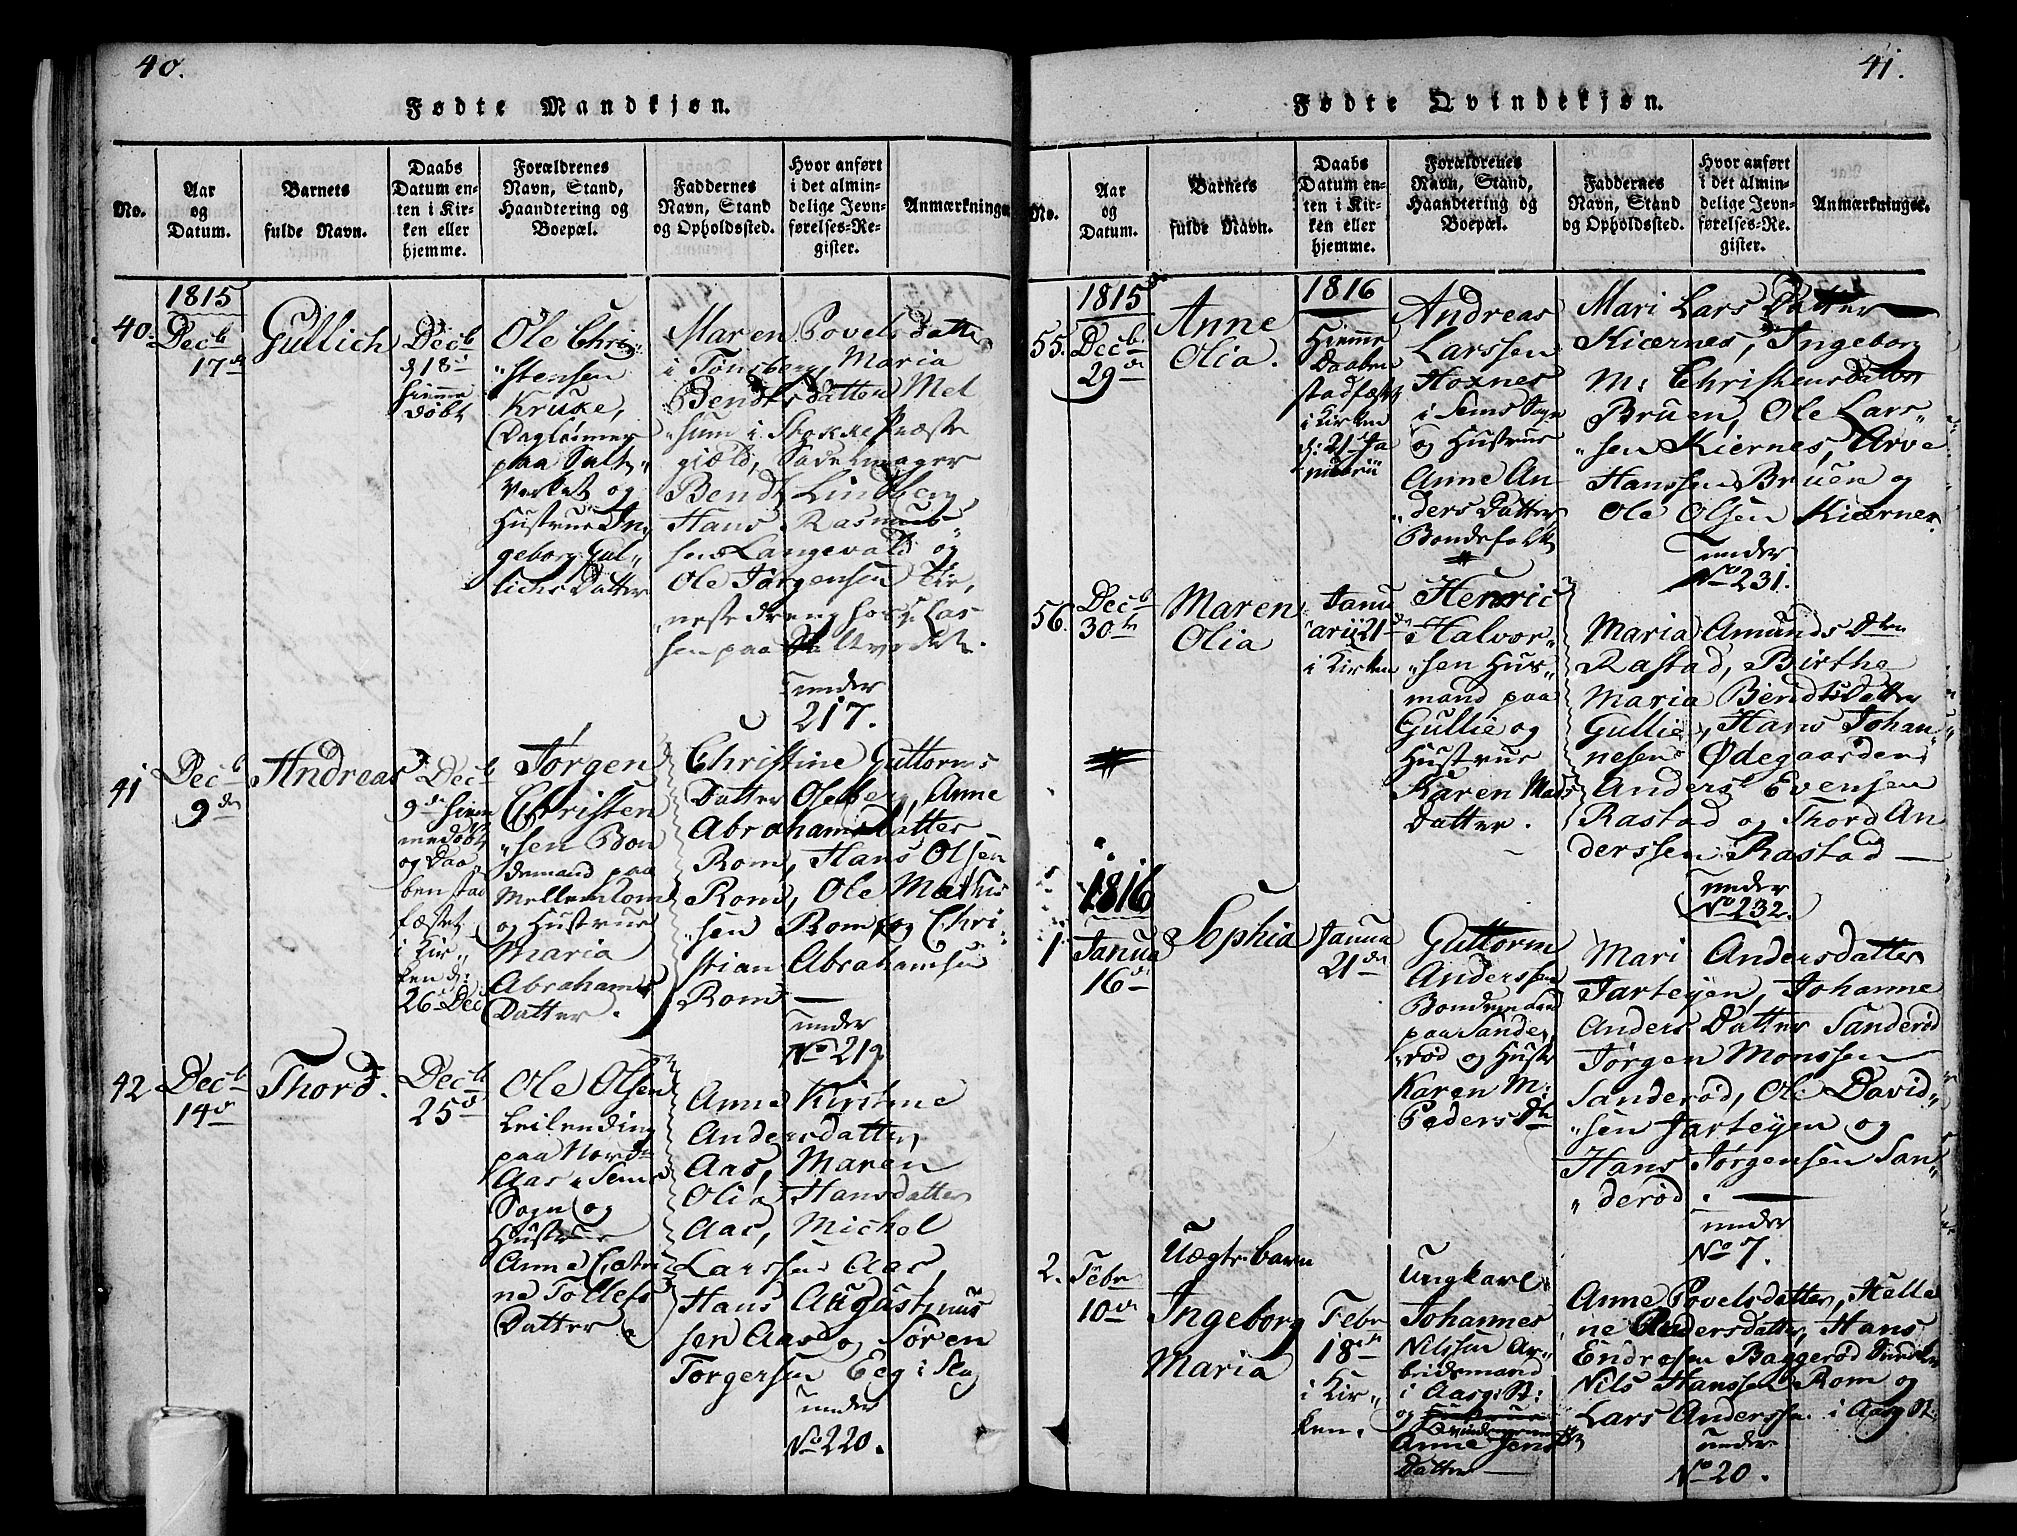 40.
Fødte Mandkjøn.
No.
Aar
og
Datum.
Barnets
fulde Navn.
Daabs
Datum en-
ten i Kir-
ken eller
hjemme.
Forældrenes
Navn, Stand,
Haandtering og
Boepæl.
Faddernes
Navn, Stand
og Opholdssted.
Hvor anført
i det almin-
delige Jevn-
førelses-Re-
gister.
Anmærkninge
1815
40.
Decb
17de
Gullich
Decb
d 18d
hiemme
døbt
Ole Chri
"stensen
Kruke,
Dagleiner
paa Salt"
Verket og
Hustrue In"
geborg Gul"
lichs Datter
Maren Povels datter
i Tønsberg, Maria
Bendtsdatter Mel
"sum i Stokke Præste
gield, Sadelmager
Bendt Lindberg
Hans Rasmus"
sen Langevald og
Ole Jørgensen Tie,
neste dreng hos Las
sen paa Saltverket.
under
217.
41
Decb
9de
Andreas
Decb
9de hiem
medøbt
og Daa"
ben stad
fæstet
i Kir"
ken d:
26 Dec
Jørgen
Christen
"sen Bon
demand paa
Mellem Rom
og Hustrue
Maria
Abrahams
Datter.
Christine Guttorms
Datter Oleberg, Anne
Abrahamsdatter
Rom, Hans Olsen
Rom, Ole Mathis
"sen Rom og Chri"
stian Abrahamsen
Rom —
under
No 219
42
Decb
14d
Thord.
Decb
25d
Ole Olsen
Leilending
paa Nordre
Aas i Sems
Sogn og
Hustrue
Anne Catri
ne Tollefs
Datter
Anne Kirstine
Andersdatter
Aas, Maren
Olia Hansdatter
Aas, Michel
Larssen Aas,
Hans Augustinus
sen Aas og Søren
Torgersen Eeg i Slag
under
No 220.
41.
Fødte Qvindekjøn.
No.
Aar
og
Datum.
Barnets
fulde Navn.
Daabs
Datum en-
ten i Kir-
ken eller
hjemme.
Forældrenes
Navn, Stand,
Haandtering og
Boepæl.
Faddernes
Navn, Stand
og Opholdssted.
Hvor anført
i det almin-
delige Jevn-
førelses-Re-
gister.
Anmærkninge.
1815
55.
Decb.
29de
Anne
Olia.
1816
Hiemme
Daaben
stadfæstet
i Kirken
d: 21de Ja
nuarii
Andreas
Larssen
Hoxnes
i Sems Sogn
og Hustrue
Anne An
ders Datter
Bondefolk
Mari Lars Datter
Kiærnes, Ingeborg
M: Christensdatter
Bruen, Ole Lars"
"sen Kiernes, Arve
Hanssen Bruen og
Ole Olsen Kiærnes
under
No 231.
56.
Decb
30te
Maren
Olia
Janu
arii 21de
i Kirken
Henric
Halvor"
"sen Hus"
mand paa
Gullie og
Hustrue
Karen Mads
Datter.
Maria Amunds Dtter
Rastad, Birthe
Maria Bendts Datter
Gullie, Hans Johan"
nesen Ødegaarden
Anders Evensen
Rastad og Thord An
derssen Rastad —
under
No 232.
1816
1
Janua
16de
Sophia
Janua
21de
Guttorm
Anderssen
Bondemand
paa Sande"
"rød og Hustr
Karen M:
Peders Dtr
Mari Andersdatter
Jarteyen, Johanne
Anders Datter Sanderød
Jørgen Monssen
Sanderød, Ole David"
"sen Jarteyen og
Hans Jørgensen San"
"derød. —
under
No 7.
2.
Febr
10de
Uægte barn
Ingeborg
Maria
Febr
18de
i Kir"
ken.
Ungkarl
Johannes
Nilssen Ar"
beidsmand
i Aasg: St:
og
Anne Jens
Datter —
Anne Povelsdatter, Helle
ne Andersdatter, Hans
Endresen Baggerød
Nils Hanssen Rom og
Lars Anderssen i Aasg St:
under
No 20.